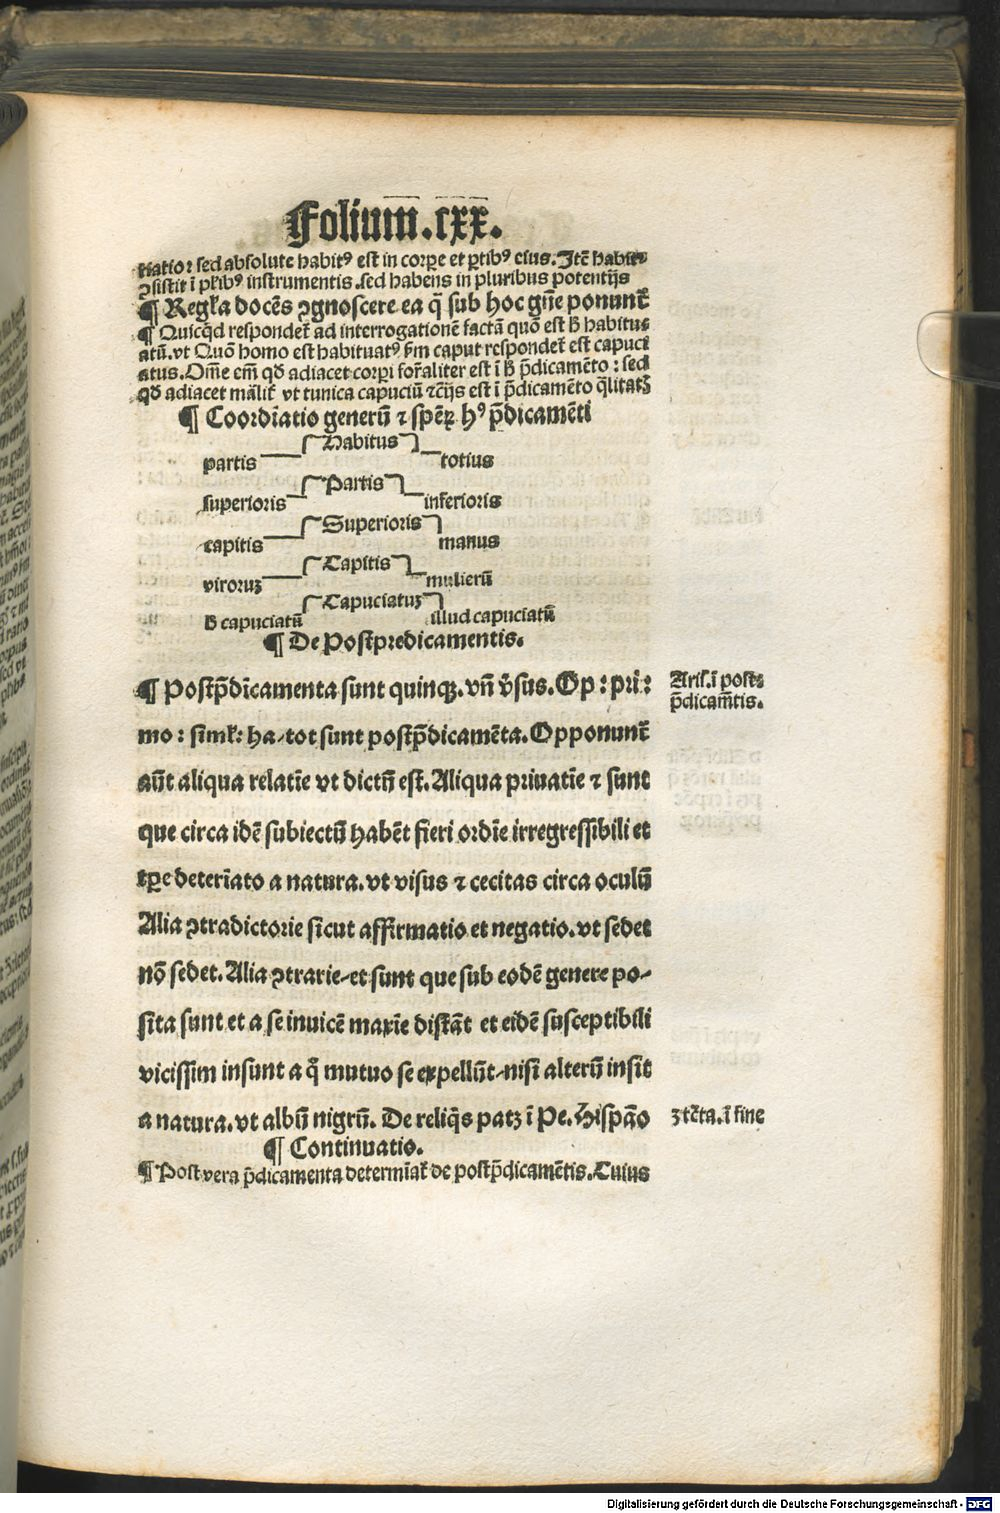 Folium̅. cxx.
tiatio: sed absolute habitꝰ est in corꝑe et ꝑtibꝰ eius. Itē habitꝰ
ꝯsistit ī pl̄ibꝰ instrumentis. sed habens in pluribus potentijs
¶ Regl̄a docēs ꝯgnoscere ea q̄ sub hoc gn̄e ponunt̄
¶ Quicqd respondet̄ ad interrogationē factā quō est ħ habitus
atū. vt Quō homo est habituatꝰ ẜm caput respondet̄ est capuci
atus. Om̄e em̄ qd adiacet corpi for̄aliter est ī ħ p̄dicamēto: sed
qd adiacet māliť vt tunica capuciū ⁊c̄ijs est ī p̄dicamēto q̄litatꝫ
¶ Coordīatio generū ⁊ spēꝝ hꝰ p̄dicamēti
Habitus
partis totius
Partis
superioris inferioris
Superioris
capitis manus
Capitis
viroruꝫ mulierū
Capuciatuꝫ
ħ capuciatū illud capuciatū
¶ De Postpredicamentis.
¶ Postp̄dīcamenta sunt quinqꝫ. vn̄ v̓sus. Op: pri:
mo: simł: ha-tot sunt postp̄dicamēta. Opponunt̄
aūt aliqua relatīe vt dictū est. Aliqua priuatīe ⁊ sunt
que circa idē subiectū habēt fieri ordīe irregressibili et
tꝑe deterīato a natura. vt visus ⁊ cecitas circa oculū
Alia ꝯtradictorie sicut affirmatio et negatio. vt sedet
nō sedet. Alia ꝯtrarie-et sunt que sub eodē genere po-
sita sunt et a se inuicē maxīe distāt et eidē susceptibili
vicissim insunt a q̊ mutuo se expellūt-nisi alterū insit
a natura. vt albū nigrū. De reliq̄s patꝫ ī Pe. Hispāo
¶ Continuatio.
¶ Post vera p̄dicamenta determīat̄ de postp̄dicamētis. Cuius
Arił. ī post:
p̄dicam̄tis.
ꝫ tc̄ta. ī fine
Digitalisierung gefördert durch die Deutsche Forschungsgemeinschaft - DFG